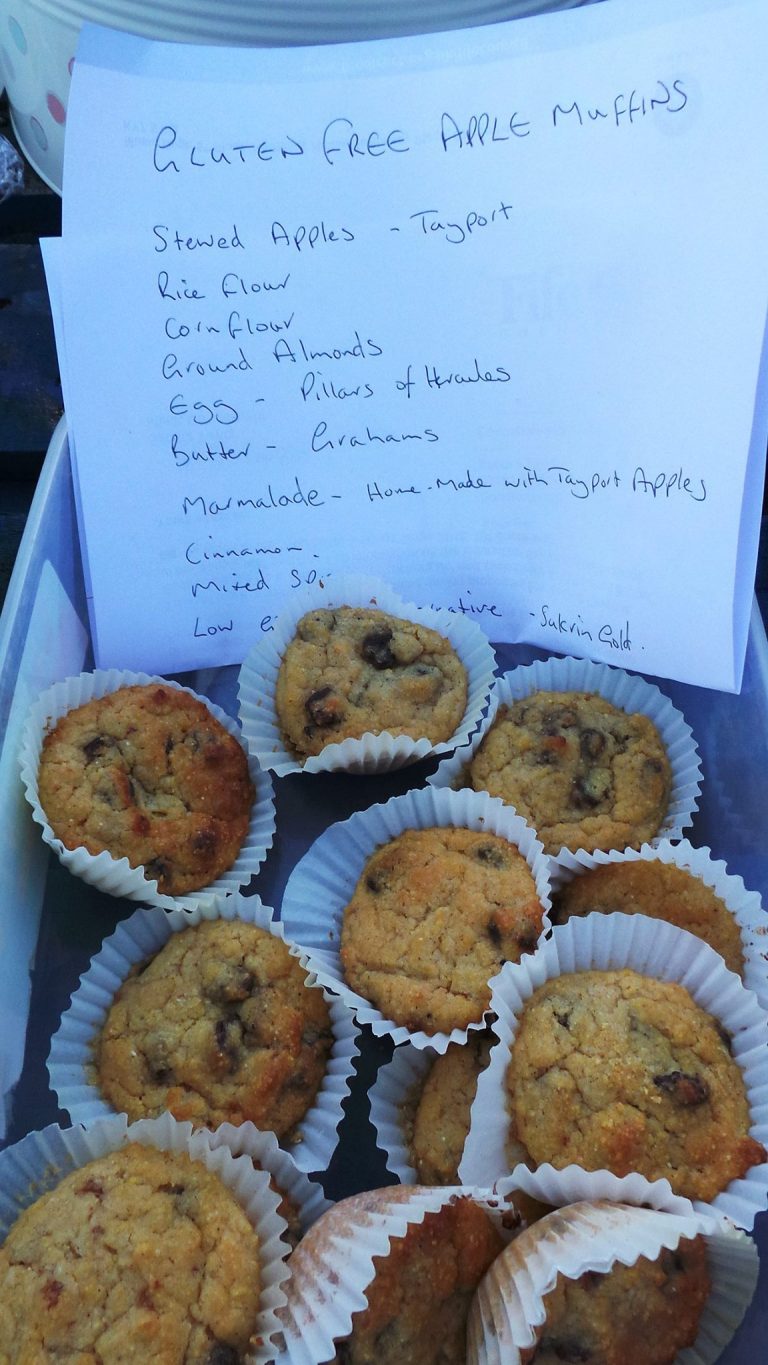 GLUTEN FREE APPLE MUFFINS
Stewed Apples - Tayport
Rice Flour
Corn flour
Ground Almonds
Egg - Pillars of Hercules
Butter - Grahams
Marmalade - Home-Made with Tayport Apples
Cinnamon.
Mixed
Low - Sukrin Gold.